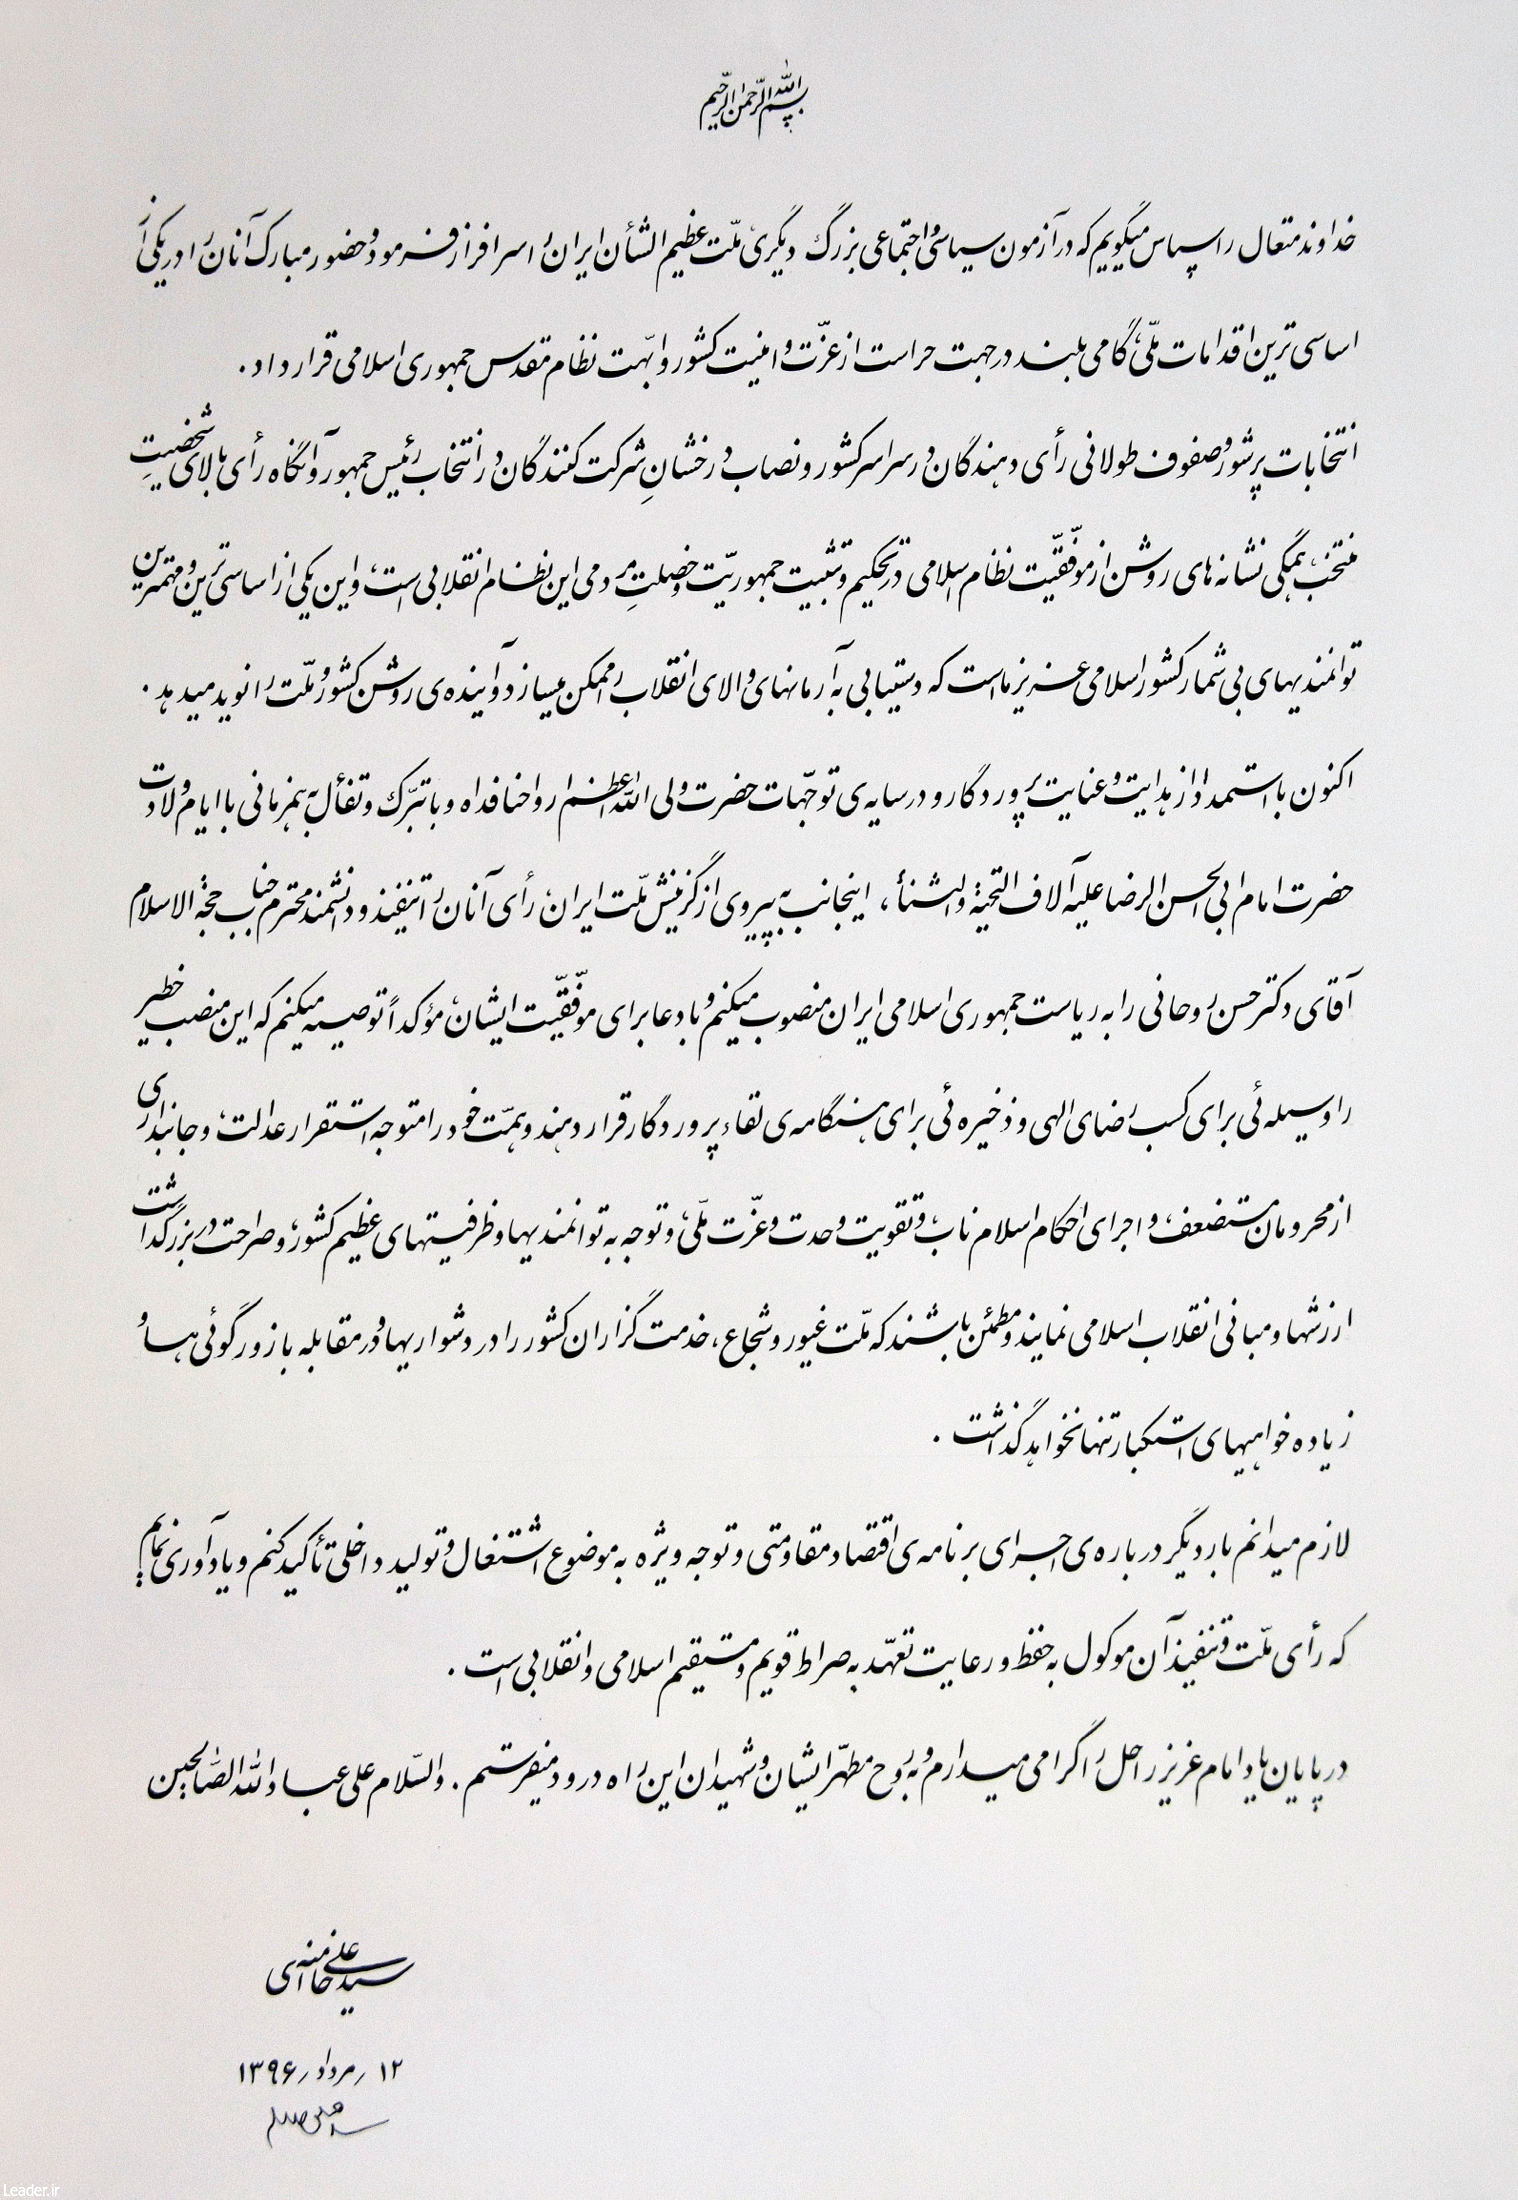 بسم الله الرحمن الرحیم
خداوند متعال را سپاس میگویم که در آزمون سیاسی و اجتماعی بزرگ دیگری، ملّت عظیم‌الشأن ایران را سرافراز فرمود و حضور مبارک آنان را در یکی از
اساسی‌ترین اقدامات ملّی، گامی بلند در جهت حراست از عزّت و امنیت کشور و ابّهت نظام مقدس جمهوری اسلامی قرار داد.
انتخابات پرشور و صفوف طولانی رأی دهندگان در سراسر کشور و نصاب درخشانِ شرکت کنندگان در انتخاب رئیس جمهور و آنگاه رأی بالای شخصیتِ
منتخب، همگی نشانه‌های روشن از موفّقیّت نظام اسلامی در تحکیم و تثبیت جمهوریّت و خصلتِ مردمی این نظام انقلابی است، و این یکی از اساسی‌ترین و مهمترین
توانمندیهای بی‌شمار کشور اسلامی عزیز ما است که دستیابی به آرمانهای والای انقلاب را ممکن میسازد و آینده‌ی روشن کشور و ملّت را نوید میدهد.
اکنون با استمداد از هدایت و عنایت پروردگار و در سایه‌ی توجّهات حضرت ولی‌الله‌اعظم ارواحنافداه و با تبرّک و تفأل به همزمانی با ایام ولادت
حضرت امام ابی‌الحسن الرضا علیه آلاف التحیة و الثناء، اینجانب به پیروی از گزینش ملّت ایران، رأی آنان را تنفیذ و دانشمند محترم جناب حجة الاسلام
آقای دکتر حسن روحانی را به ریاست جمهوری اسلامی ایران منصوب میکنم و با دعا برای موفّقیّت ایشان، مؤکداً توصیه میکنم که این منصب خطیر
را وسیله‌ئی برای کسب رضای الهی و ذخیره‌ئی برای هنگامه‌ی لقاء پروردگار قرار دهند و همّت خود را متوجه استقرار عدالت، و جانبداری
از محرومان مستضعف، و اجرای احکام اسلام ناب، و تقویت وحدت و عزّت ملّی، و توجه به توانمندیها و ظرفیتهای عظیم کشور، و صراحت در بزرگداشت
ارزشها و مبانی انقلاب اسلامی نمایند و مطمئن باشند که ملّت غیور و شجاع، خدمت‌گزاران کشور را در دشواریها و در مقابله با زورگوئی‌ها و
زیاده‌خواهیهای استکبار تنها نخواهد گذاشت.
لازم میدانم بار دیگر درباره‌ی اجرای برنامه‌ی اقتصاد مقاومتی و توجه ویژه به موضوع اشتغال و تولید داخلی تأکید کنم و یادآوری نمایم
که رأی ملّت و تنفیذ آن موکول به حفظ و رعایت تعهّد به صراط قویم و مستقیم اسلامی و انقلابی است.
در پایان یاد امام عزیز راحل را گرامی میدارم و به روح مطهّر ایشان و شهیدان این راه درود میفرستم. والسّلام علی عباد الله الصّالحین
سید علی خامنه‌ای
۱۲ / مرداد / ۱۳۹۶
Leader.ir